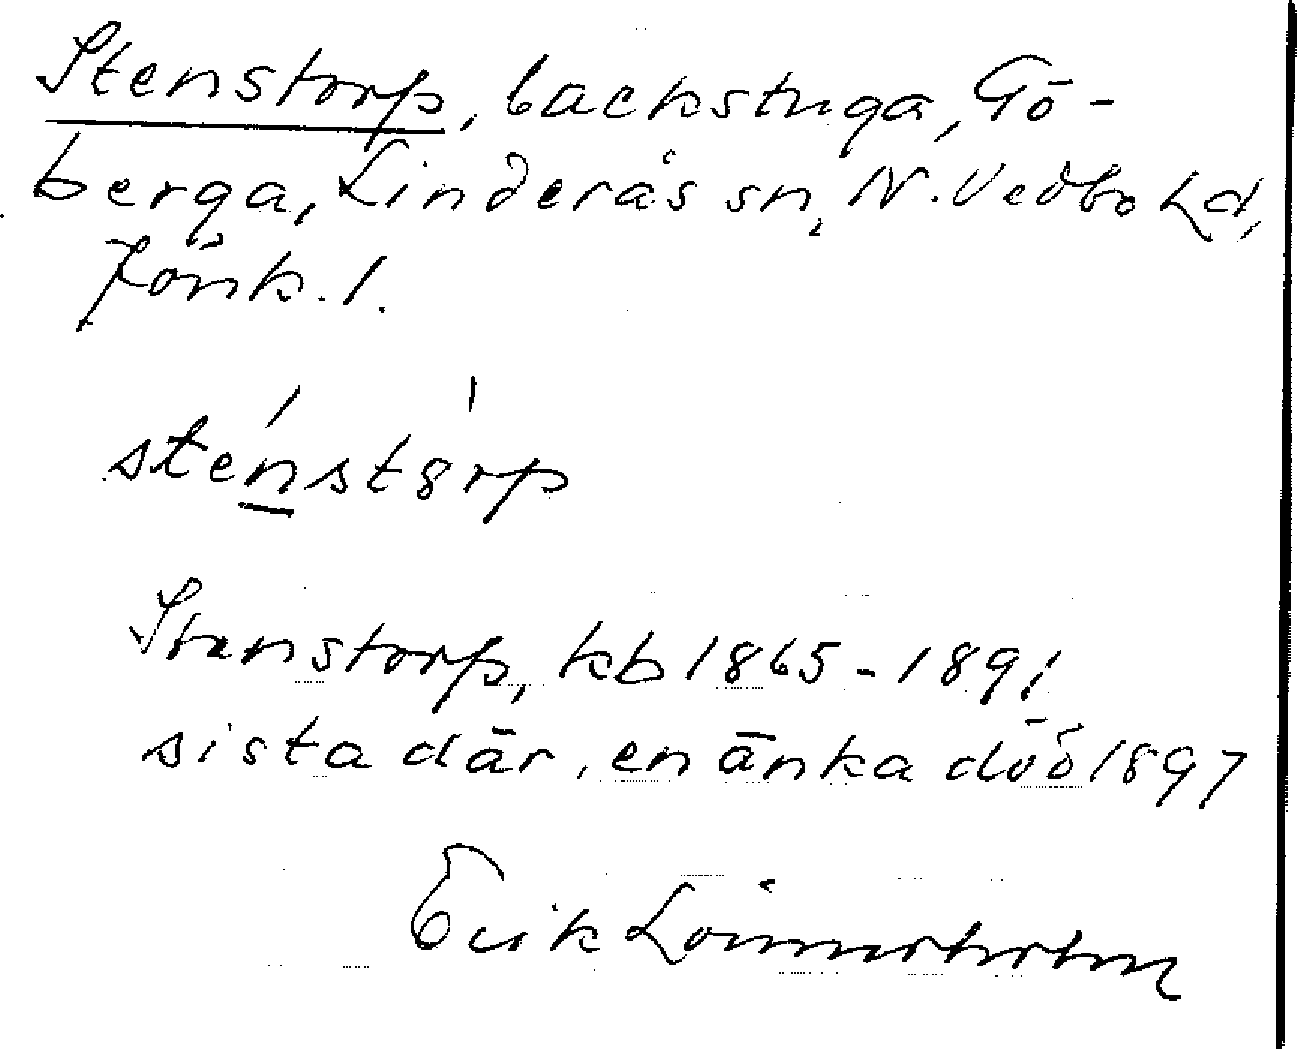 Stenstorp, backstuga, Gö-
berga, Linderås sn, N. Vedbo hd,
Jönk. l.
sténstórp
Stenstorp, kb 1865-1891
sista där, en änka död 1897
Erik Lönnerholm